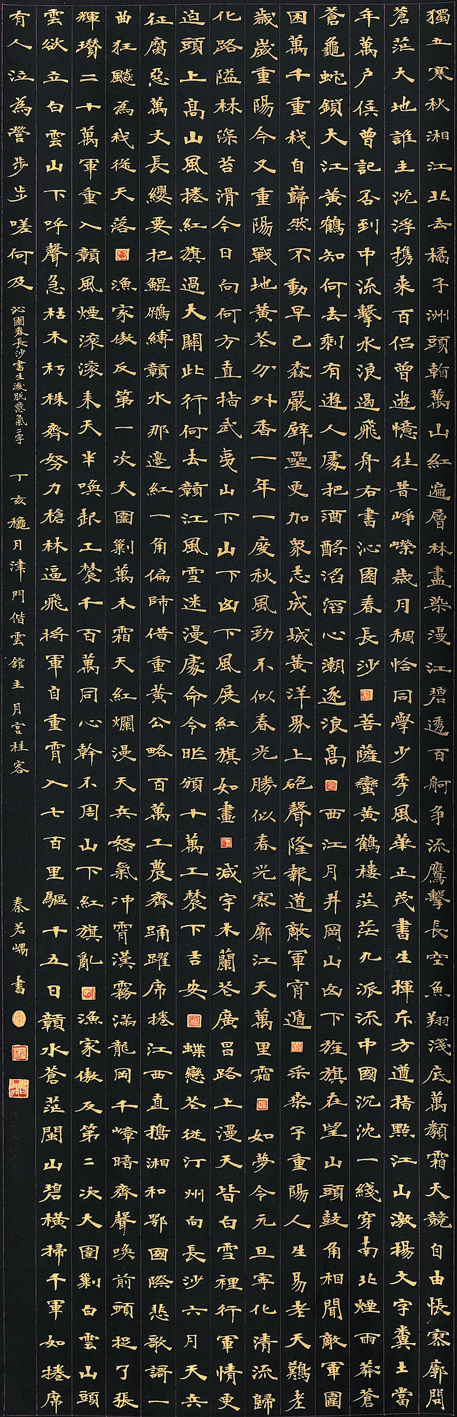 獨立寒秋湘江北去橘子洲頭看萬山紅遍層林盡染漫江碧透百舸爭流鷹擊長空魚翔淺底萬類霜天競自由悵寥廓問
蒼茫大地誰主沈浮攜來百侶曾遊憶往昔崢嶸歲月稠恰同學少年風華正茂書生揮斥方遒指點江山激揚文字糞土當
年萬戶侯曾記否到中流擊水浪遏飛舟右書沁園春長沙菩薩蠻黃鶴樓茫茫九派流中國沉沈一綫穿南北煙雨莽蒼
蒼龜蛇鎖大江黃鶴知何去剩有遊人處把酒酹滔滔心潮逐浪高西江月井岡山山下旌旗在望山頭鼓角相聞敵軍圍
困萬千重我自巋然不動早已森嚴壁壘更加眾志成城黃洋界上砲聲隆報道敵軍宵遁采桑子重陽人生易老天難老
歲歲重陽今又重陽戰地黃花分外香一年一度秋風勁不似春光勝似春光寥廓江天萬里霜如夢令元旦寧化清流歸
化路隘林深苔滑今日向何方直指武夷山下山下山下風展紅旗如畫減字木蘭花廣昌路上漫天皆白雪裡行軍情更
迫頭上高山風捲紅旗過大關此行何去贛江風雪迷漫處命令昨頒十萬工農下吉安蝶戀花從汀州向長沙六月天兵
征腐惡萬丈長纓要把鯤鵬縛贛水那邊紅一角偏師借重黃公略百萬工農齊踴躍席捲江西直搗湘和鄂國際悲歌謌一
曲狂飇為我從天落漁家傲反第一次大圍剿萬木霜天紅爛漫天兵怒氣沖霄漢霧滿龍岡千嶂暗齊聲喚前頭捉了張
輝瓚二十萬軍重入贛風煙滾滾來天半喚起工農千百萬同心幹不周山下紅旗亂漁家傲反第二次大圍剿白雲山頭
雲欲立白雲山下呼聲急枯木朽株齊努力槍林逼飛將軍自重霄入七百里驅十五日贛水蒼茫閩山碧橫掃千軍如捲席
有人泣為營步步嗟何及 沁園春長沙書生後脫意氣二字 丁亥穐月津門偕雲館主月宮桂客 秦若嶠 書